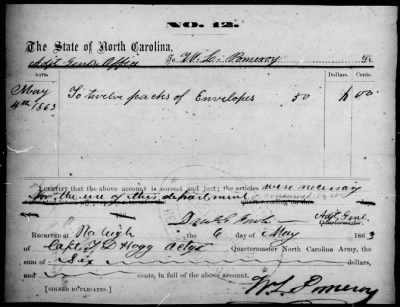 NO. 12.
The State of North Carolina,
Adjt Genls Office To W. L. Pomeroy Dr.
DATE. Dollars. Cents.
May
4th 1863 To twelve packs of Envelopes 50 6 00
I CERTIFY that the above account is correct and just; the articles were necessary
for the use of this department
Adjt. Genl.
Quartermaster.
RECEIVED AT Raleigh the 6 day of May 1863
of Capt. T D Hogg actg Quartermaster North Carolina Army, the
sum of Six
cents, in full of the above account.
[SIGNED DUPLICATES.] W L Pomeroy